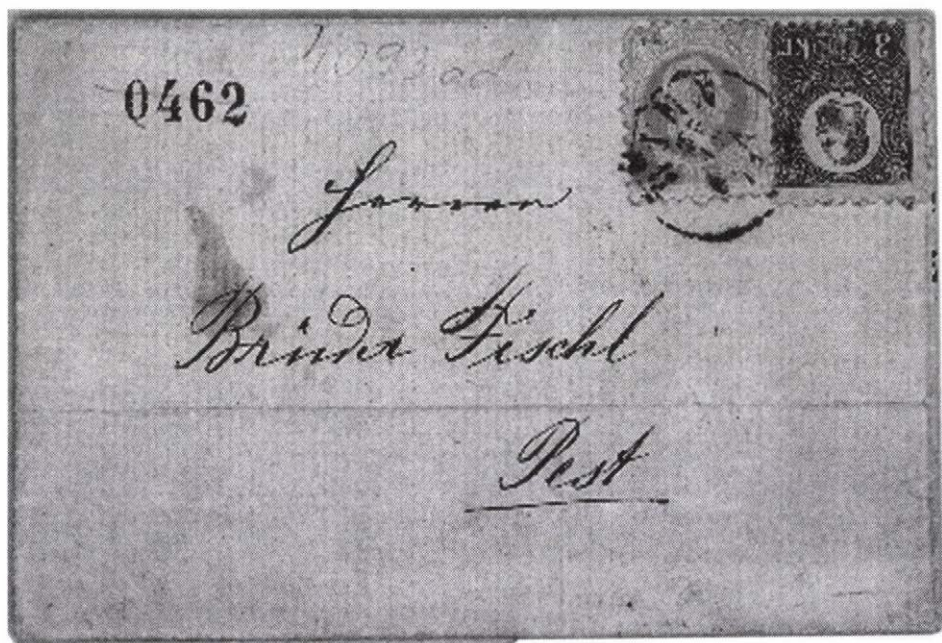 0462
Herren
Brüder Fischl
Pest